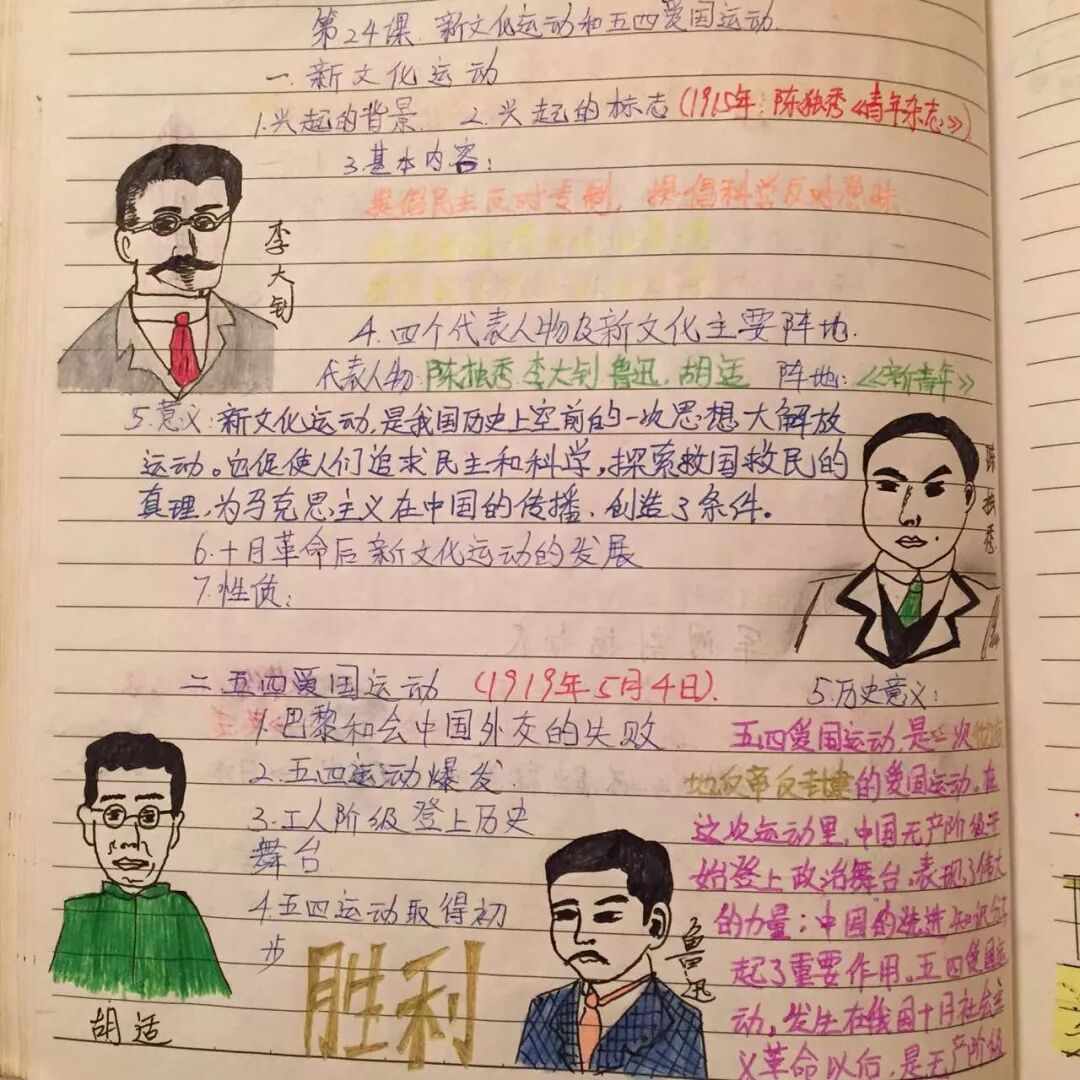 第24课 新文化运动和五四爱国运动
一.新文化运动
1.兴起的背景 2.兴起的标志(1915年:陈独秀《青年杂志》)
3.基本内容:
提倡民主反对专制, 提倡科学反对愚昧
李大钊
4.四个代表人物及新文化主要阵地.
代表人物:陈独秀 李大钊 鲁迅 胡适 阵地:《新青年》
5.意义:新文化运动,是我国历史上空前的一次思想大解放
运动。它促使人们追求民主和科学,探索救国救民的
真理,为马克思主义在中国的传播,创造了条件。
陈独秀
6.十月革命后新文化运动的发展
7.性质:
二.五四爱国运动 (1919年5月4日).
1.巴黎和会中国外交的失败
2.五四运动爆发.
3.工人阶级登上历史
舞台.
4.五四运动取得初
步
胜利
胡适
鲁迅
5.历史意义:
五四爱国运动,是一次
地反帝反封建的爱国运动。在
这次运动里,中国无产阶级开
始登上政治舞台,表现了伟大
的力量;中国的先进知识分子
起了重要作用。五四爱国运
动,发生在俄国十月社会主
义革命以后,是无产阶级